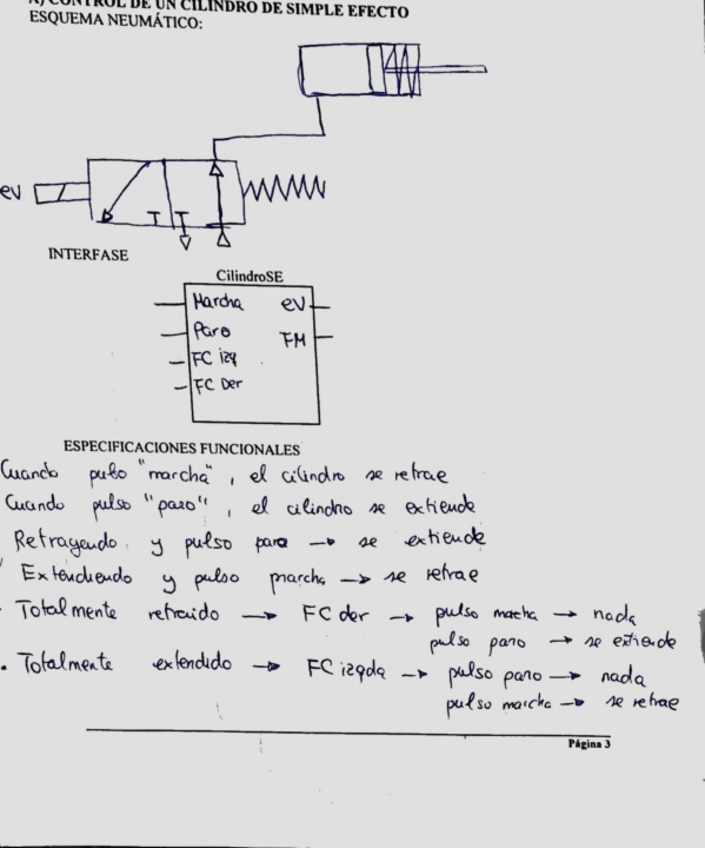 A) CONTROL DE UN CILINDRO DE SIMPLE EFECTO
ESQUEMA NEUMÁTICO:
eV
INTERFASE
CilindroSE
Marcha eV
Paro FM
FC izq
FC Der
ESPECIFICACIONES FUNCIONALES
Cuando pulso "marcha", el cilindro se retrae
Cuando pulso "paro", el cilindro se extiende
Retrayendo y pulso paro → se extiende
Extendiendo y pulso marcha → se retrae
· Totalmente retraido → FC der → pulso marcha → nada
pulso paro → se extiende
· Totalmente extendido → FC izqda → pulso paro → nada
pulso marcha → se retrae
Página 3